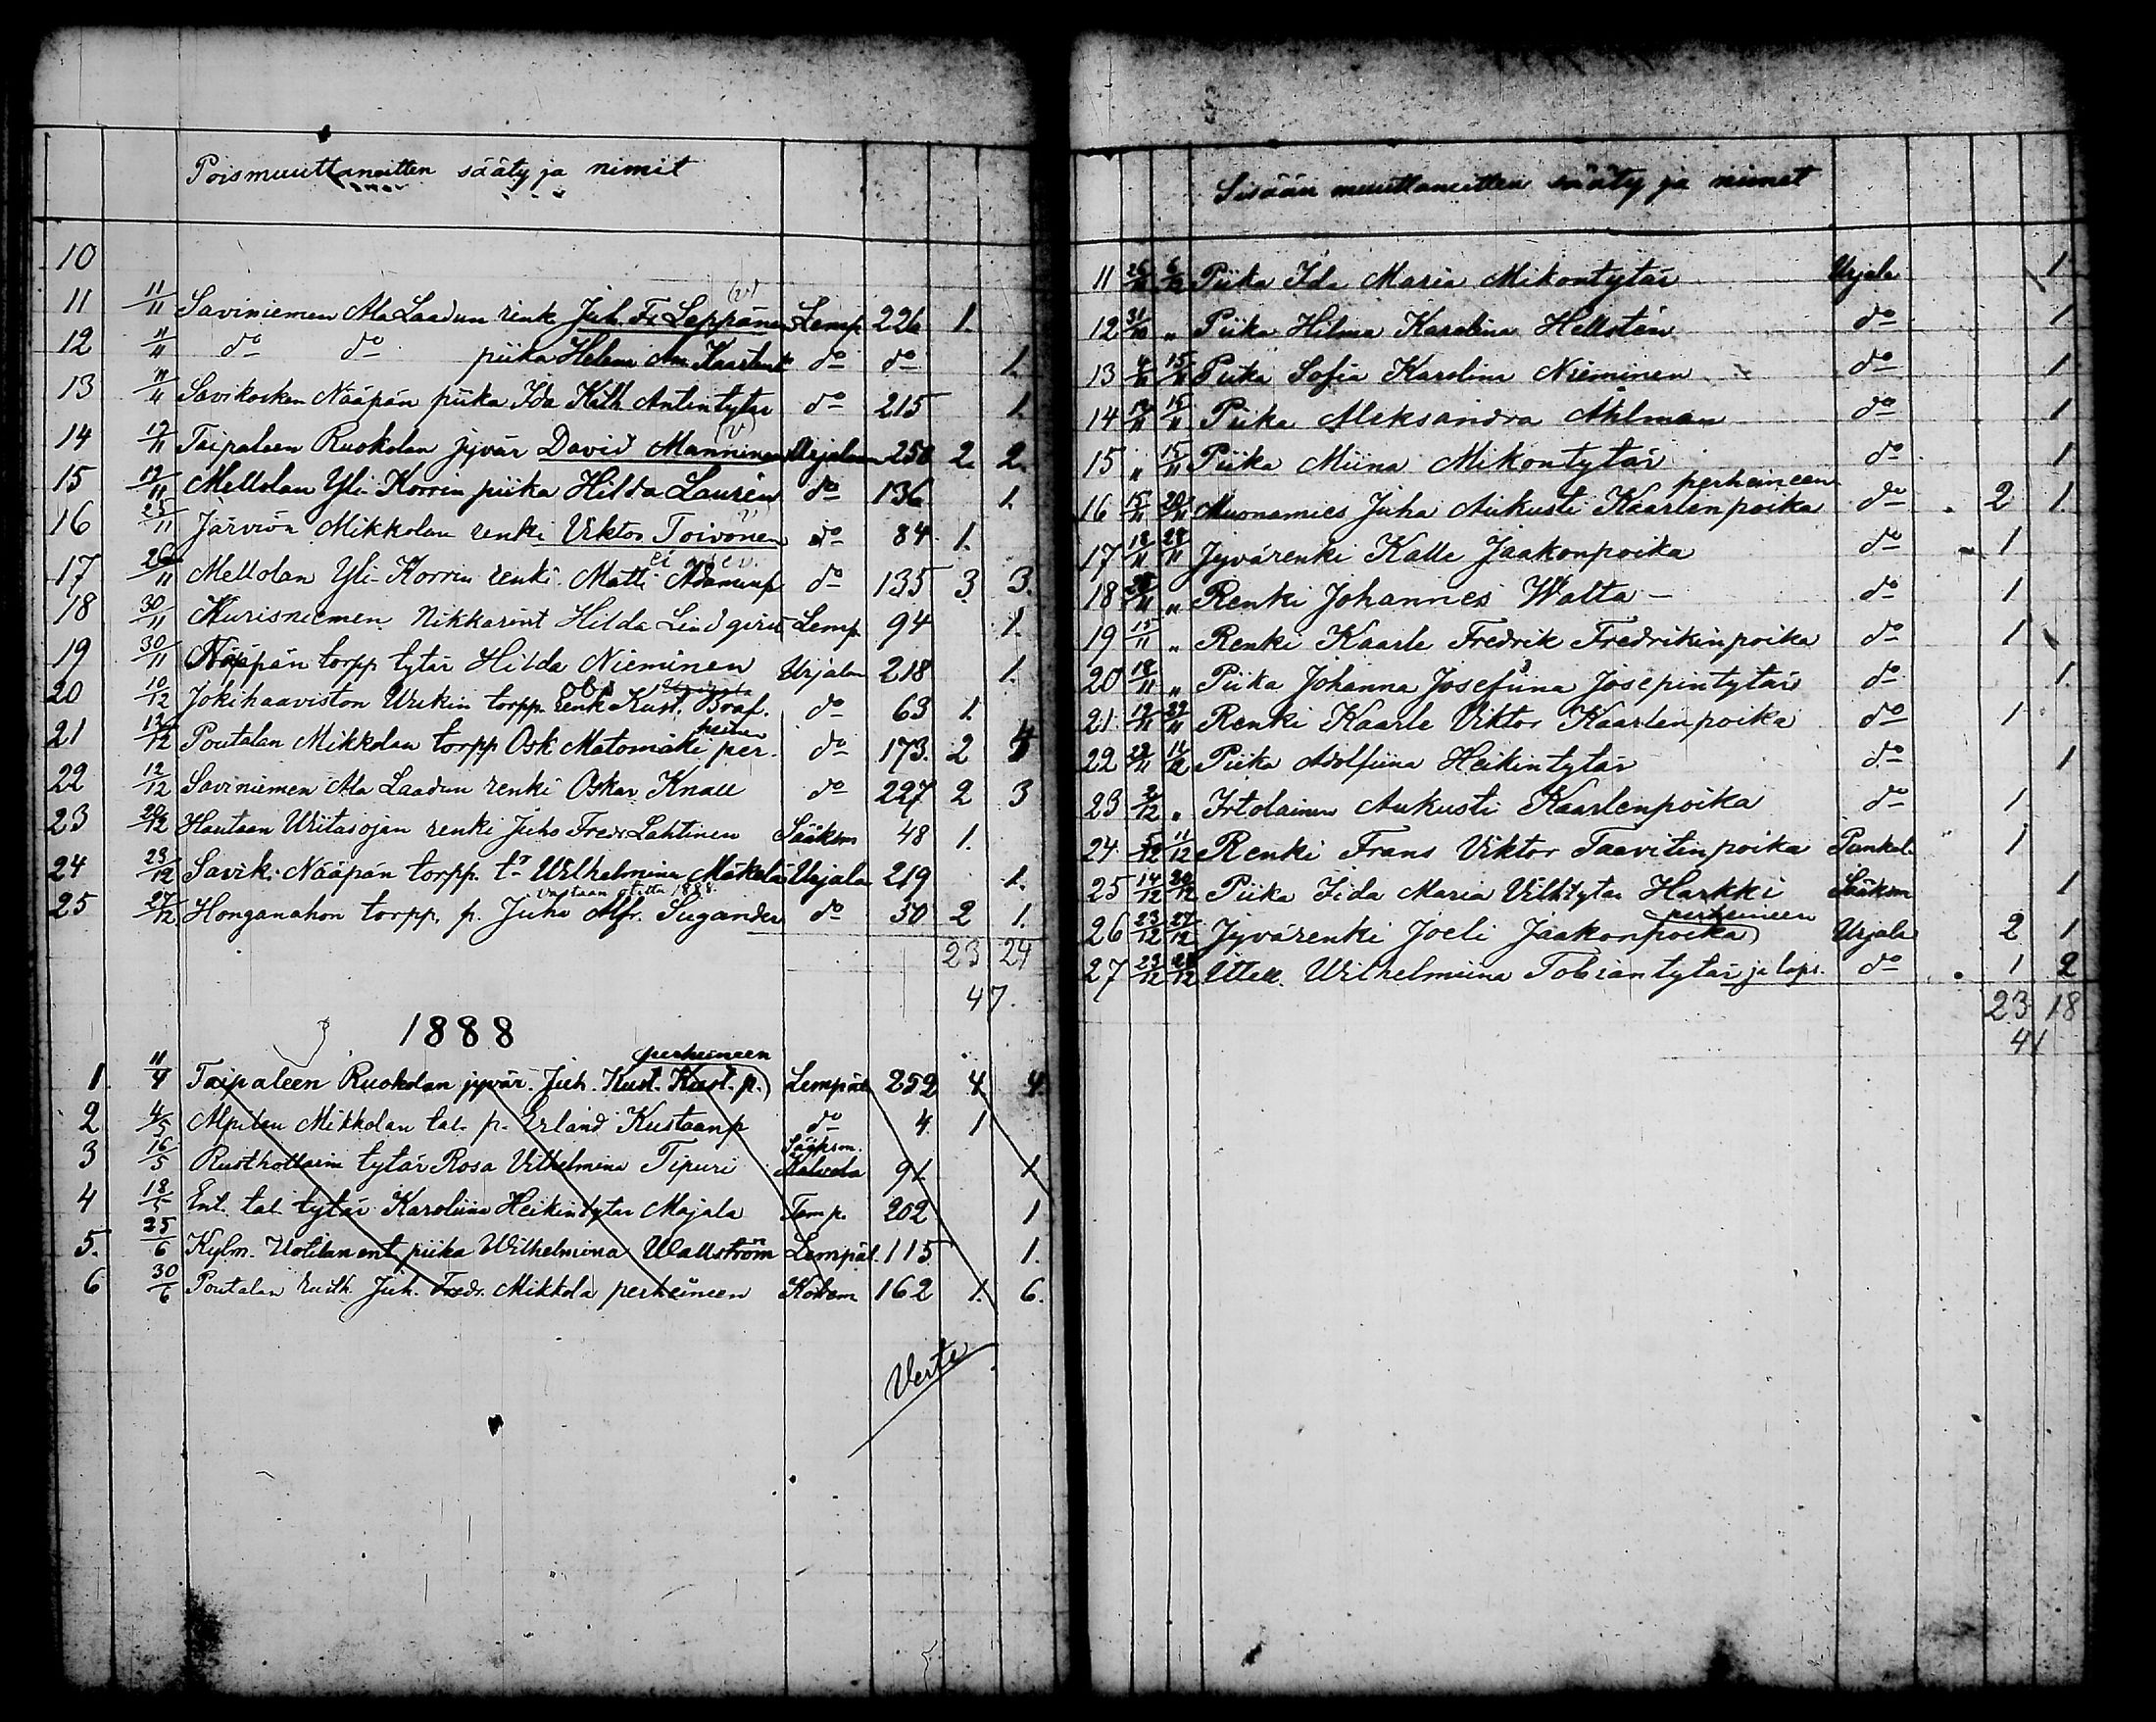 Poismuuttaneitten sääty ja nimit
10
(v)
11 11/11 Saviniemen Ala Laadun renk. Juh. Fr Leppänen Lemp. 226 1.
12 11/11 do do piika Helena Am. do do 1.
13 11/11 Savikosken Nääpän piika Ida Kath. Antintytär do 215 1.
(v)
14 Taipaleen Ruokolan jyvär David Manninen Urjalan 250 2. 2.
15 Mellolan Yli-Korrin piika Hilda Laurén do 136 1.
(v)
16 25/11 Järviön Mikkolan renki Viktor Toivonen do 84 1.
17 26/11 Mellolan Yli-Korrin renki Matti Adaminp do 135 3. 3.
18 30/11 Kurisniemen Nikkarint Hilda Lemp. 94 1.
19 30/11 Nääpän torpp tytär Hilda Nieminen Urjalan 218 1.
obs
20 10/12 Jokihaaviston torpp. renk. Kust. do 63 1.
heineen
21 12/12 Poutalan Mikkolan torpp Osk Matomäki per. do 173. 2
22 12/12 Saviniemen Ala Laadun renki Oskar Knall do 227 2 3
23 20/12 Hautaan renki Juho Fredr Lahtinen Sääksm 48 1.
24 23/12 Savik. Nääpän torpp. tr Wilhelmina Mäkelä Urjalan 219 1.
vastaan otettu 1888.
25 27/12. Honganahon torpp. p. Juho Alfr. Sugander do 30 2 1.
23 24
47.
1888
perheineen
1. 11/4 Taipaleen Ruokolan jyvär. Juh. Kust. Kust. p. Lempäl 252 4. 4.
2 4/5 Alpilan Mikkolan tal. p. Erland Kustaanp do 4. 1
Sääksm.
3 16/5 Rusthollarin tytär Rosa Vilhelmina Tipuri Kalvola 91. 1
4 18/5 Ent. tal. tytär Karoliina Heikintytär Majala Temp. 202 1
5. 25/6 Kylm. Uotilan ent. piika Wilhelmina Wallström Lempäl. 115 1.
6 30/6 Poutalan rusth. Juh. Fredr. Mikkola perheineen 162 1. 6.
Verte
Sisään muuttaneitten sääty ja nimet
11 Piika Ida Maria Mikontytär Urjala 1
12 31/10 " Piika Hilma Karolina Hellstén do 1
13 Piika Sofia Karolina Nieminen do 1
14 15/11 Piika Aleksandra Ahlman do 1
15 " 15/11 Piika Miina Mikontytär do 1
perheineen
16 15/11 20/11 Muonamies Juha Aukusti Kaarlenpoika do 2 1.
17 18/11 28/11 Jyvärenki Kalle Jaakonpoika do 1
18 " Renki Johannes Walta - do 1
19 15/11 " Renki Kaarle Fredrik Fredrikinpoika do 1
20 18/11 " Piika Johanna Josefiina Josepintytär do 1.
21. Renki Kaarle Viktor Kaarlenpoika do 1
22 11/12 Piika Adolfiina Heikintytär do 1
23 2/12 " Irtolainen Aukusti Kaarlenpoika do 1
24 5/12 11/12 Renki Frans Viktor Taavitinpoika 1
25 14/12 20/12 Piika Iida Maria Vilhtytär Harkki Sääksm 1
perheineen
26 23/12 27/12 Jyvärenki Joeli Jaakonpoika Urjala 2 1
27 23/12 Itsell. Wilhelmiina Tobiantytär ja laps. do 1 2
23 18
41